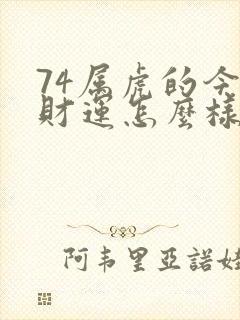 74属虎的今
财运怎麽樣
阿韦里亚諾娃